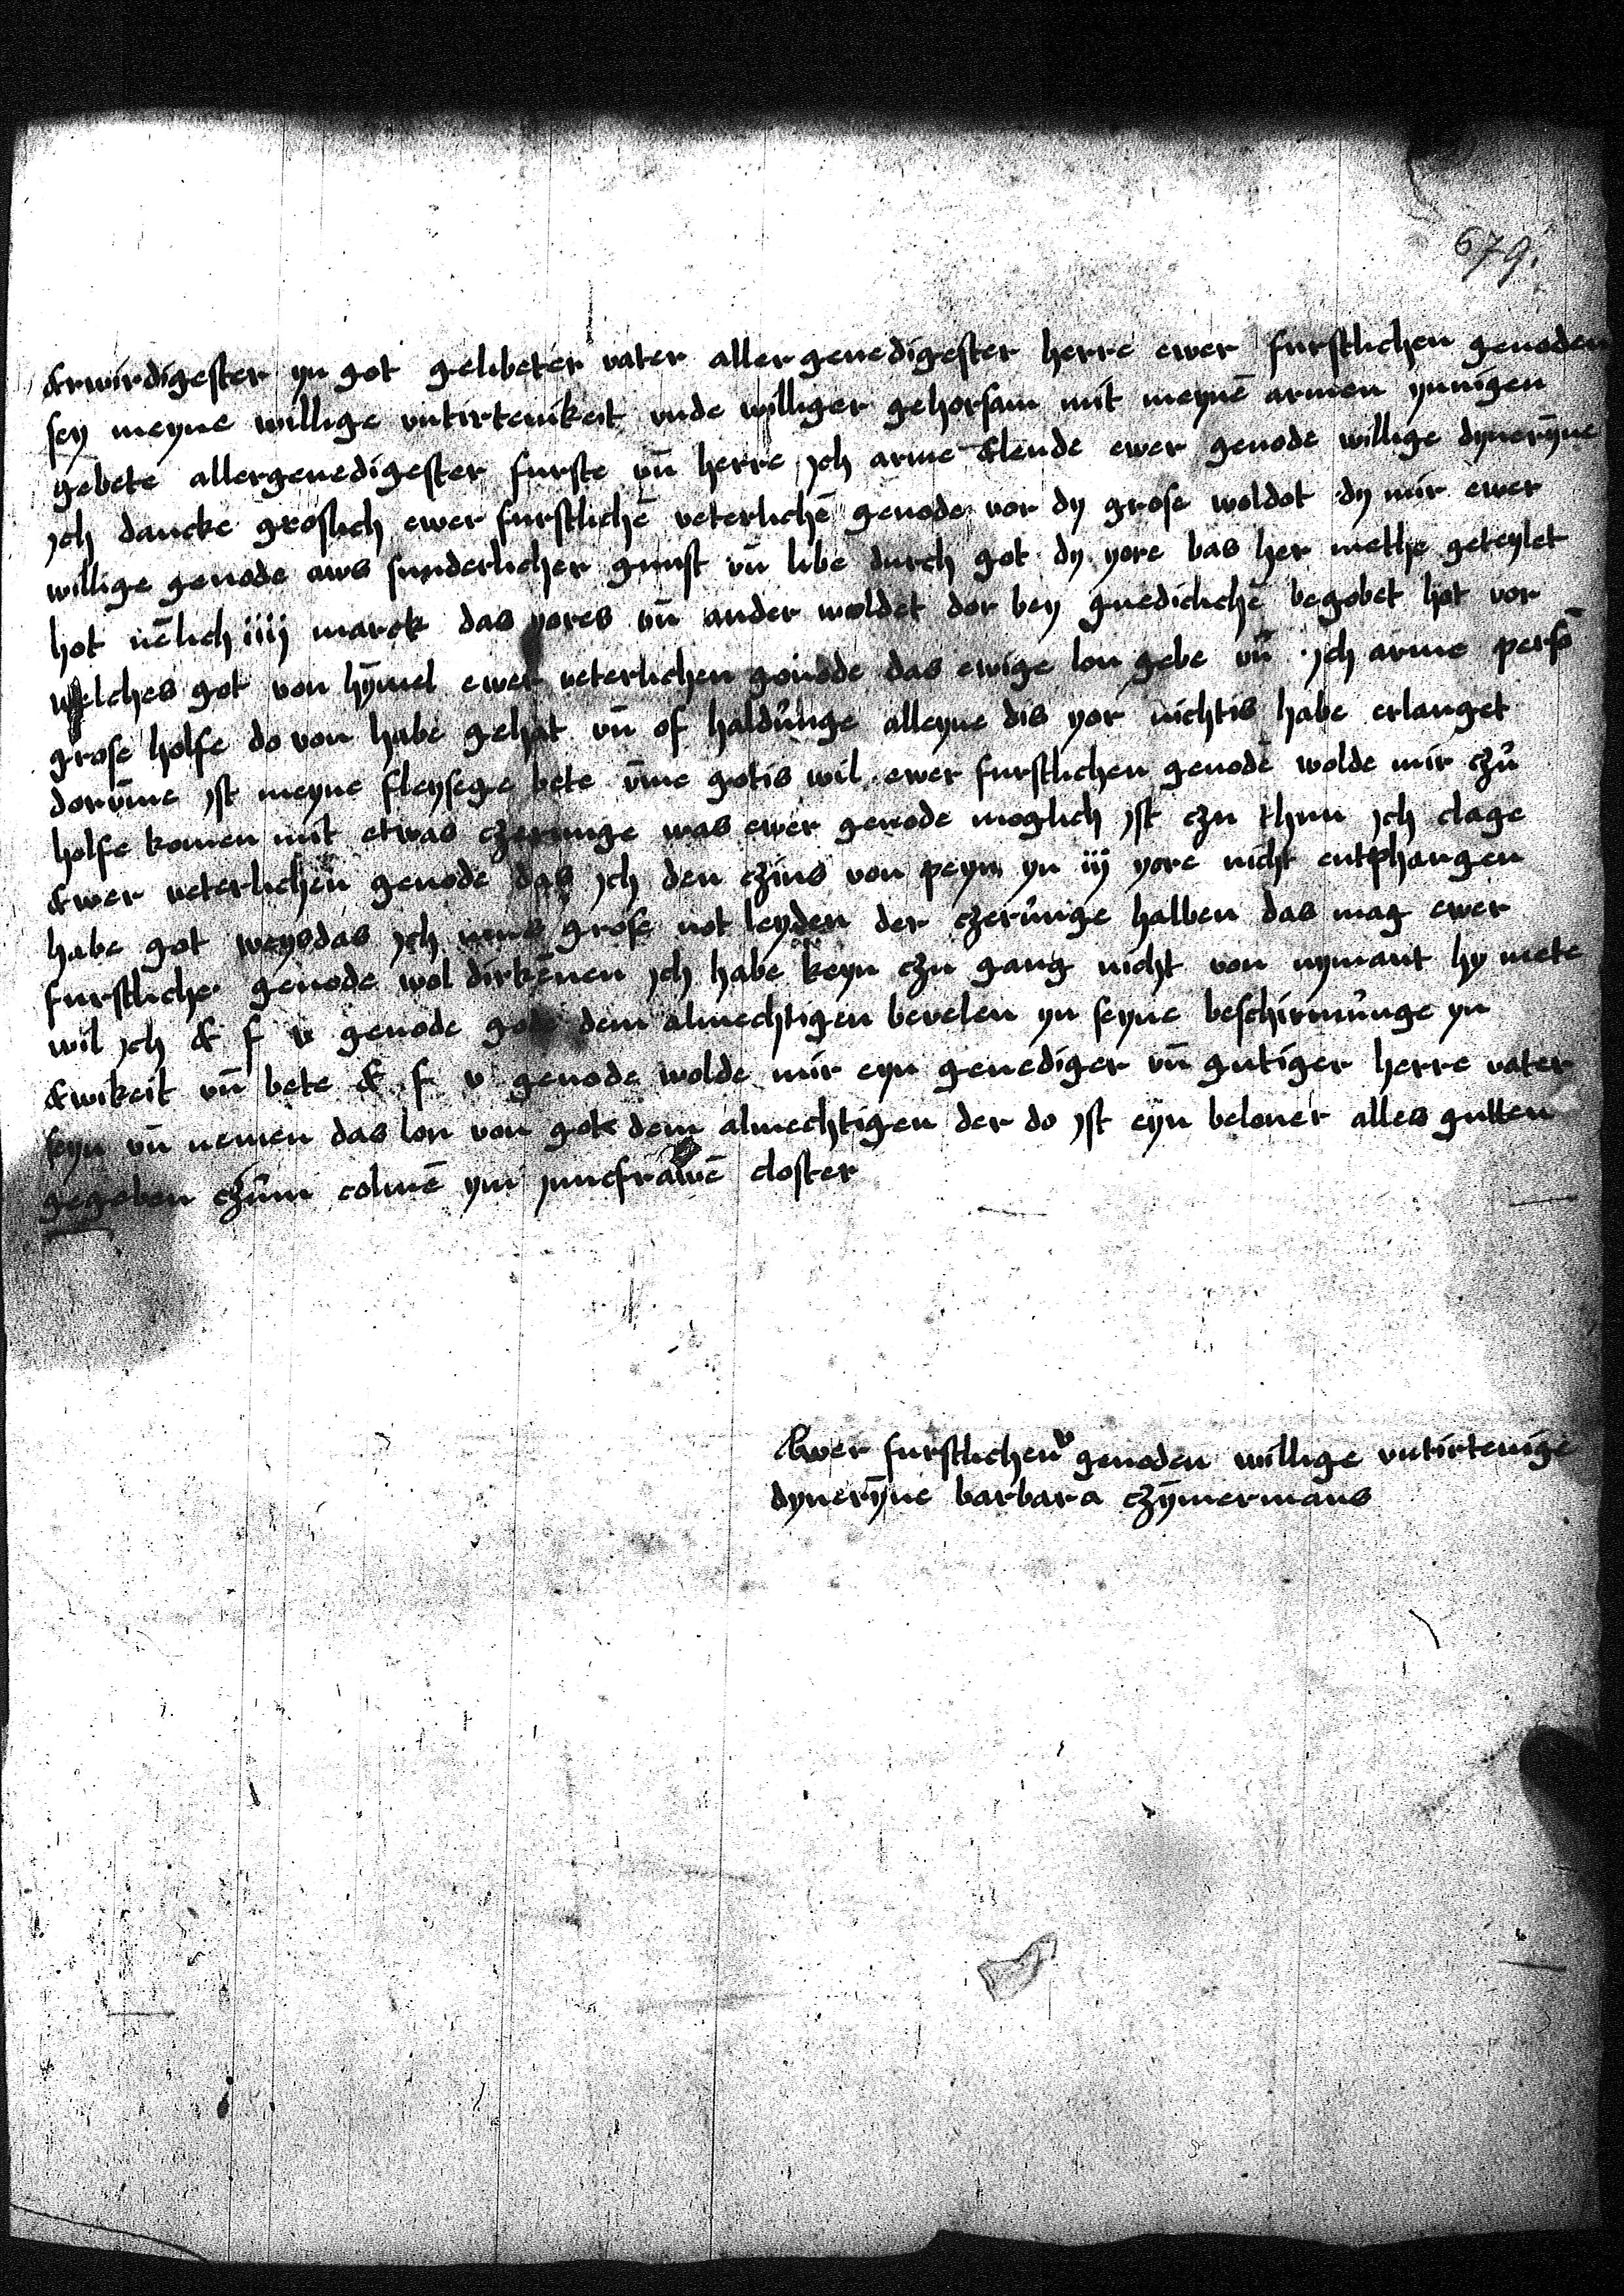 679.
Erwirdigester yn got gelibeter vater aller genedigester herre ewer furstlichen genoden
sey meyne willige vntirtenikeit vnde williger gehorsam mit meynē armen ynnigen
gebete allergenedigester furste vn̄ herre jch arme Elende ewer genode willige dynerȳne
jch dancke groslich ewer furstlichē veterlichē genode vor dy grose woldot dy mir ewer
willige genode aws sunderlicher gunst vn̄ libe durch got dy yore bas her methe geteylet
hot nēlich iiij marck das yores vn̄ ander woldet dor bey gnediclichē begobet hot vor
welches got von hȳmel ewer veterlichen genode das ewige lon gebe vn̄ jch arme persō
grose holfe do von habe gehat vn̄ of haldunge alleyne dis yor nichtis habe erlanget
dorūme jst meyne fleysege bete ūme gotis wil ewer furstlichen genodē wolde mir czu
holfe komen mit etwas czerunge was ewer genode moglich jst czu thun jch clage
Ewer veterlichen genode das jch den czins von peyn yn iij yore nicht entphangen
habe got weys das jch grose not leyden der czerunge halben das mag ewer
furstliche genode wol dirkēnen jch habe keyn czu gang nicht von nymant hy mete
wil jch E f v genode gote dem almechtigen bevelen yn seyne beschirmunge yn
Ewikeit vn̄ bete E f v genode wolde mir eyn genediger vn̄ gutiger herre vater
seyn vn̄ nemen das lon von gote dem almechtigen der do jst eyn beloner alles gutten
gegeben czum colmē ym juncfrawē closter
Ewer furstlichen v genoden willige vntirtenige
dynerȳne barbara czȳmermans